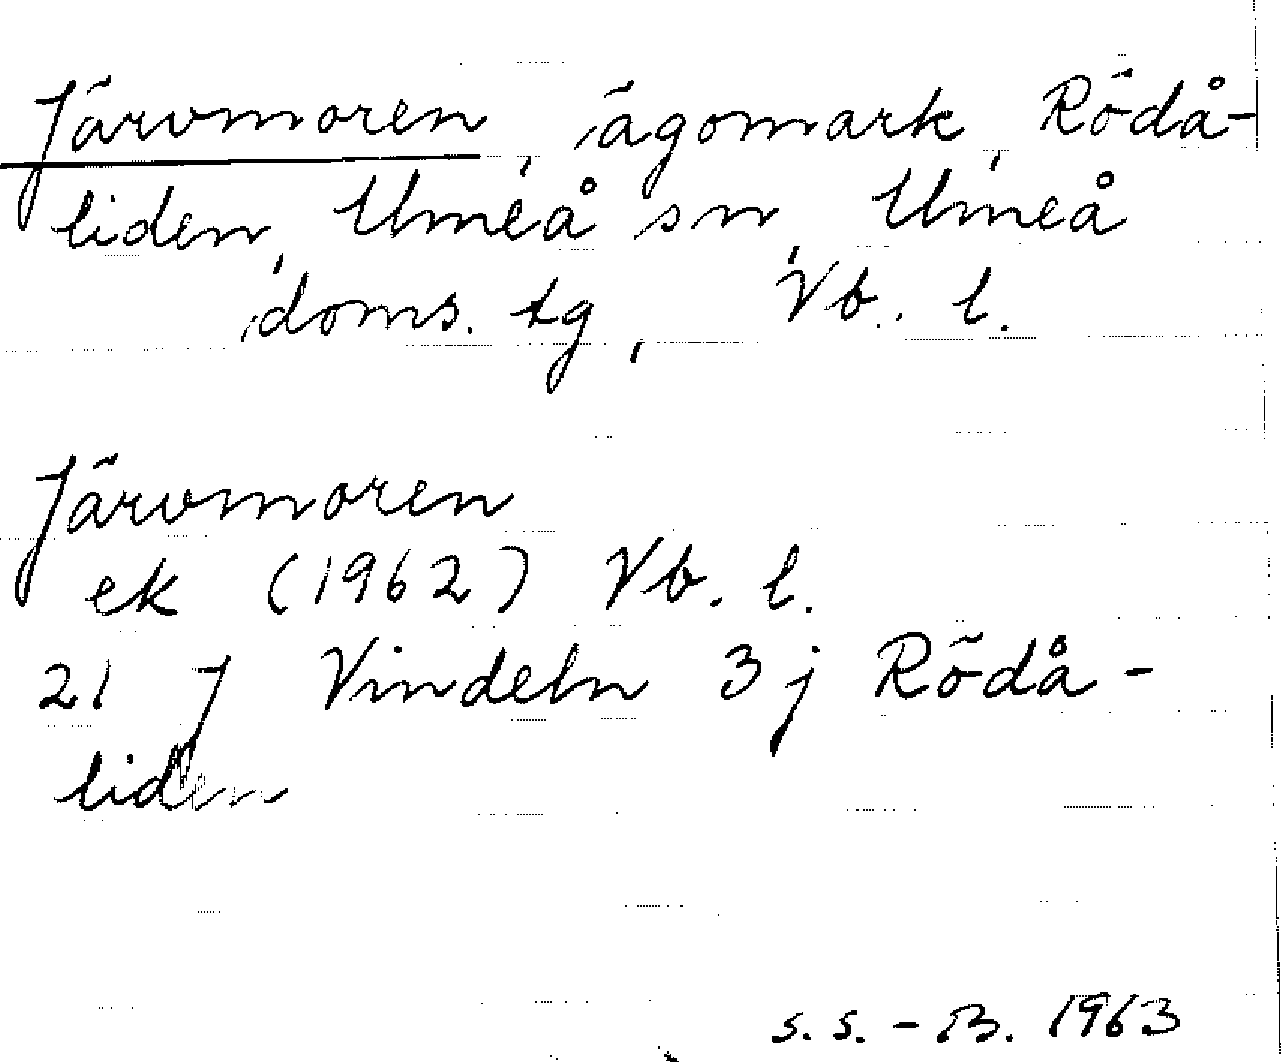 Järvmoren, ägomark, Rödå-
liden, Umeå sn, Umeå
doms. tg, Vb. l.
Järvmoren
ek (1962) Vb. l.
21 J Vindeln 3 j Rödå-
liden
S.S.-B. 1963